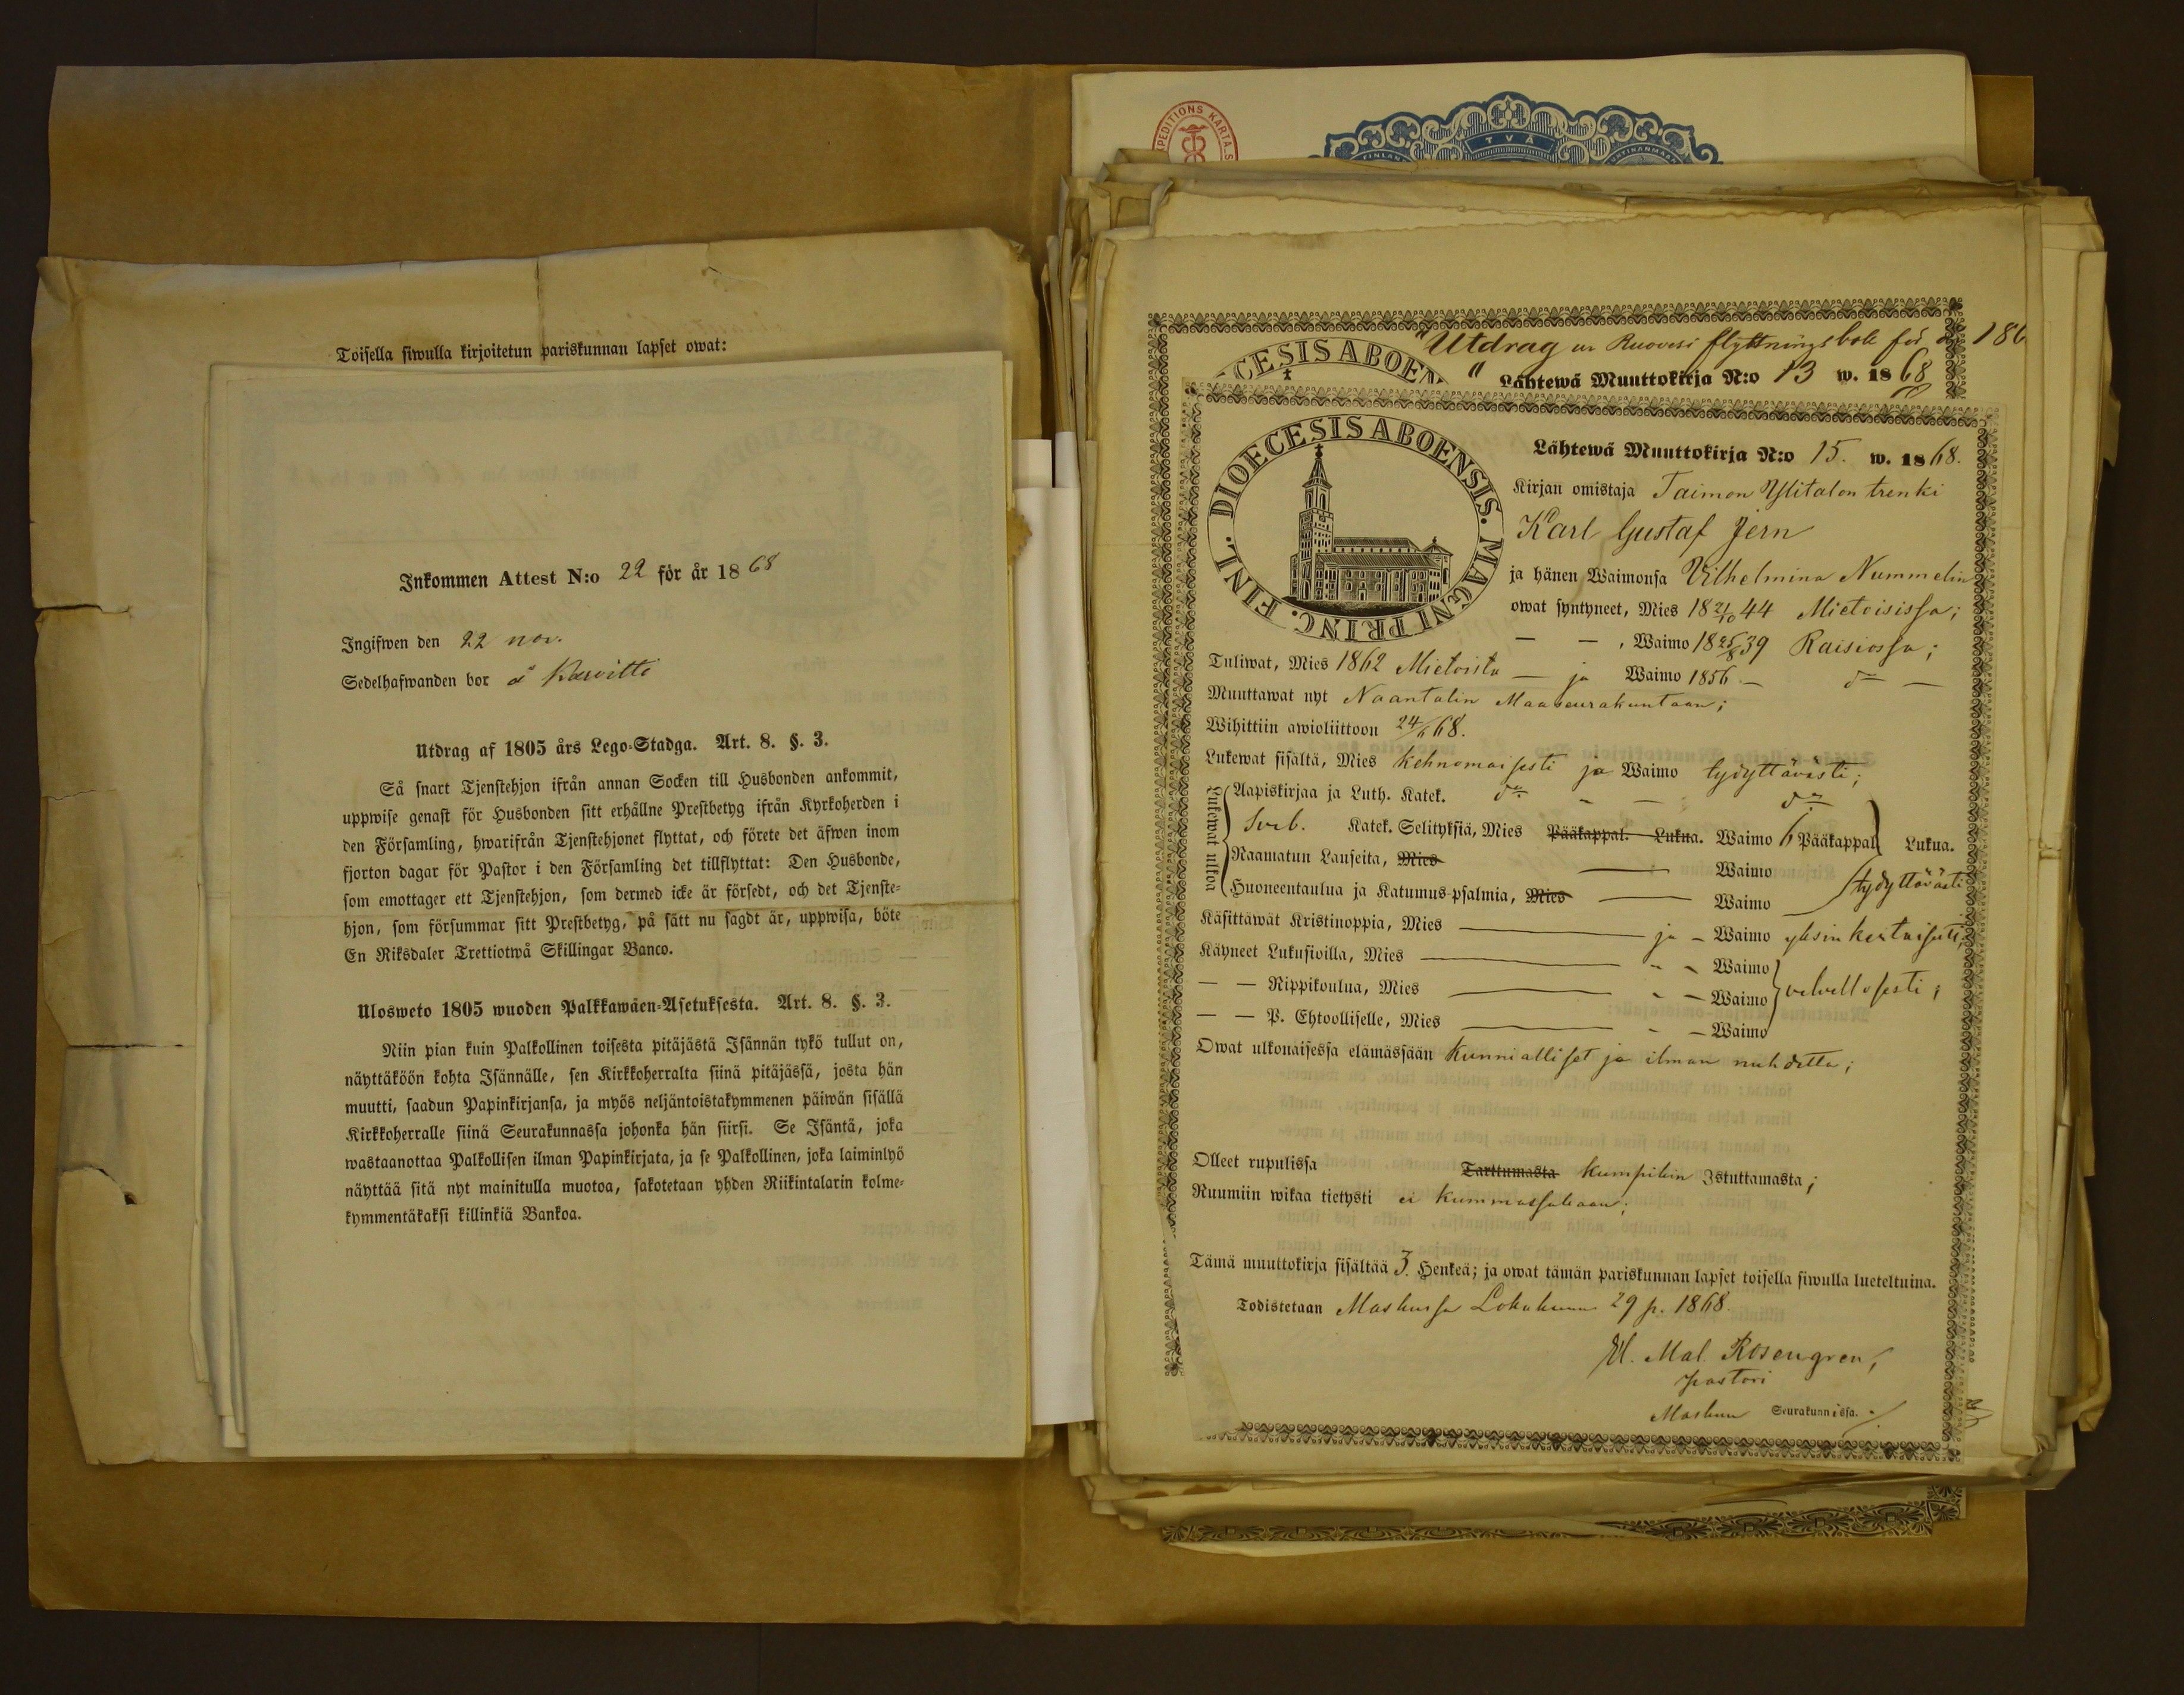 Toisella siwulla kirjoitetun pariskunnan lapset owat:
Inkommen Attest N:o 22 för år 1868
Ingifwen den 22 nov.
Sedelhafwanden bor å Karvitti
Utdrag af 1805 års Lego-Stadga. Art. 8. §. 3.
Så snart Tjenstehjon ifrån annan Socken till Husbonden ankommit,
uppwise genast för Husbonden sitt erhållne Prestbetyg ifrån Kyrkoherden i
den Församling, hwarifrån Tjenstehjonet flyttat, och förete det äfwen inom
fjorton dagar för Pastor i den Församling det tillflyttat: Den Husbonde,
som emottager ett Tjenstehjon, som dermed icke är försedt, och det Tjenste-
hjon, som försummar sitt Prestbetyg, på sätt nu sagdt är, uppwisa, böte
En Riksdaler Trettiotwå Skillingar Banco.
Ulosweto 1805 wuoden Palkkawäen-Asetuksesta. Art. 8. §. 3.
Niin pian kuin Palkollinen toisesta pitäjästä Isännän tykö tullut on,
näyttäköön kohta Isännälle, sen Kirkkoherralta siinä pitäjässä, josta hän
muutti, saadun Papinkirjansa, ja myös neljäntoistakymmenen päiwän sisällä
Kirkkoherralle siinä Seurakunnassa johonka hän siirsi. Se Isäntä, joka
wastaanottaa Palkollisen ilman Papinkirjata, ja se Palkollinen, joka laiminlyö
näyttää sitä nyt mainitulla muotoa, sakotetaan yhden Riikintalarin kolme-
kymmentäkaksi killinkiä Bankoa.
EXPEDITIONS KARTA.S
TVÅ
FINLAN
Utdrag ur Ruovesi flyttningsbok för år 186
CESIS ABOEN
Lähtewä Muuttokirja N:o 13 w. 1868
DIOECESIS ABOENSIS. MAGNI PRINC. FINL.
Lähtewä Muuttokirja N:o 15. w. 1868.
Kirjan omistaja Taimon Ylitalon trenki
Karl Gustaf Jern
ja hänen Waimonsa Vilhelmina Nummelin
owat syntyneet, Mies 18 21/10 44 Mietoisissa;
— — , Waimo 18 25/8 39 Raisiossa;
Tuliwat, Mies 1862 Mietoista — ja Waimo 1856 — do —
Muuttawat nyt Naantalin Maaseurakuntaan;
Wihittiin awioliittoon 24/6 68.
Lukewat sisältä, Mies kehnomaisesti ja Waimo tydyttävästi;
Lukewat ulkoa
Aapiskirjaa ja Luth. Katek. do - — do
Sveb. Katek. Selityksiä, Mies Pääkappal. Lukua. Waimo 6 Pääkappal. Lukua.
Raamatun Lauseita, Mies — Waimo
Huoneentaulua ja Katumus-psalmia, Mies — Waimo tydyttävästi
Käsittäwät Kristinoppia, Mies — ja - Waimo yksinkertaisesti;
Käyneet Lukusioilla, Mies — - - Waimo
— — Rippikoulua, Mies — - - Waimo velvollisesti;
— — P. Ehtoolliselle, Mies — - - Waimo
Owat ulkonaisessa elämässään kunnialliset ja ilman nuhdetta;
Olleet rupulissa Tarttumasta kumpikin Istuttamasta;
Ruumiin wikaa tietysti ei kummassakaan;
Tämä muuttokirja sisältää 3. Henkeä; ja owat tämän pariskunnan lapset toisella siwulla lueteltuina.
Todistetaan Maskussa Lokakuun 29 p. 1868.
Mal. Rosengren,
pastori
Maskun Seurakunnissa.